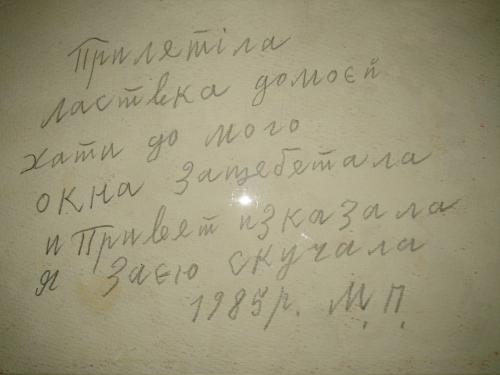 Прилетіла
ластвка домоєй
хати до мого
окна защебетала
и Привет изказала
я Заєю скучала
1985р. М. П.